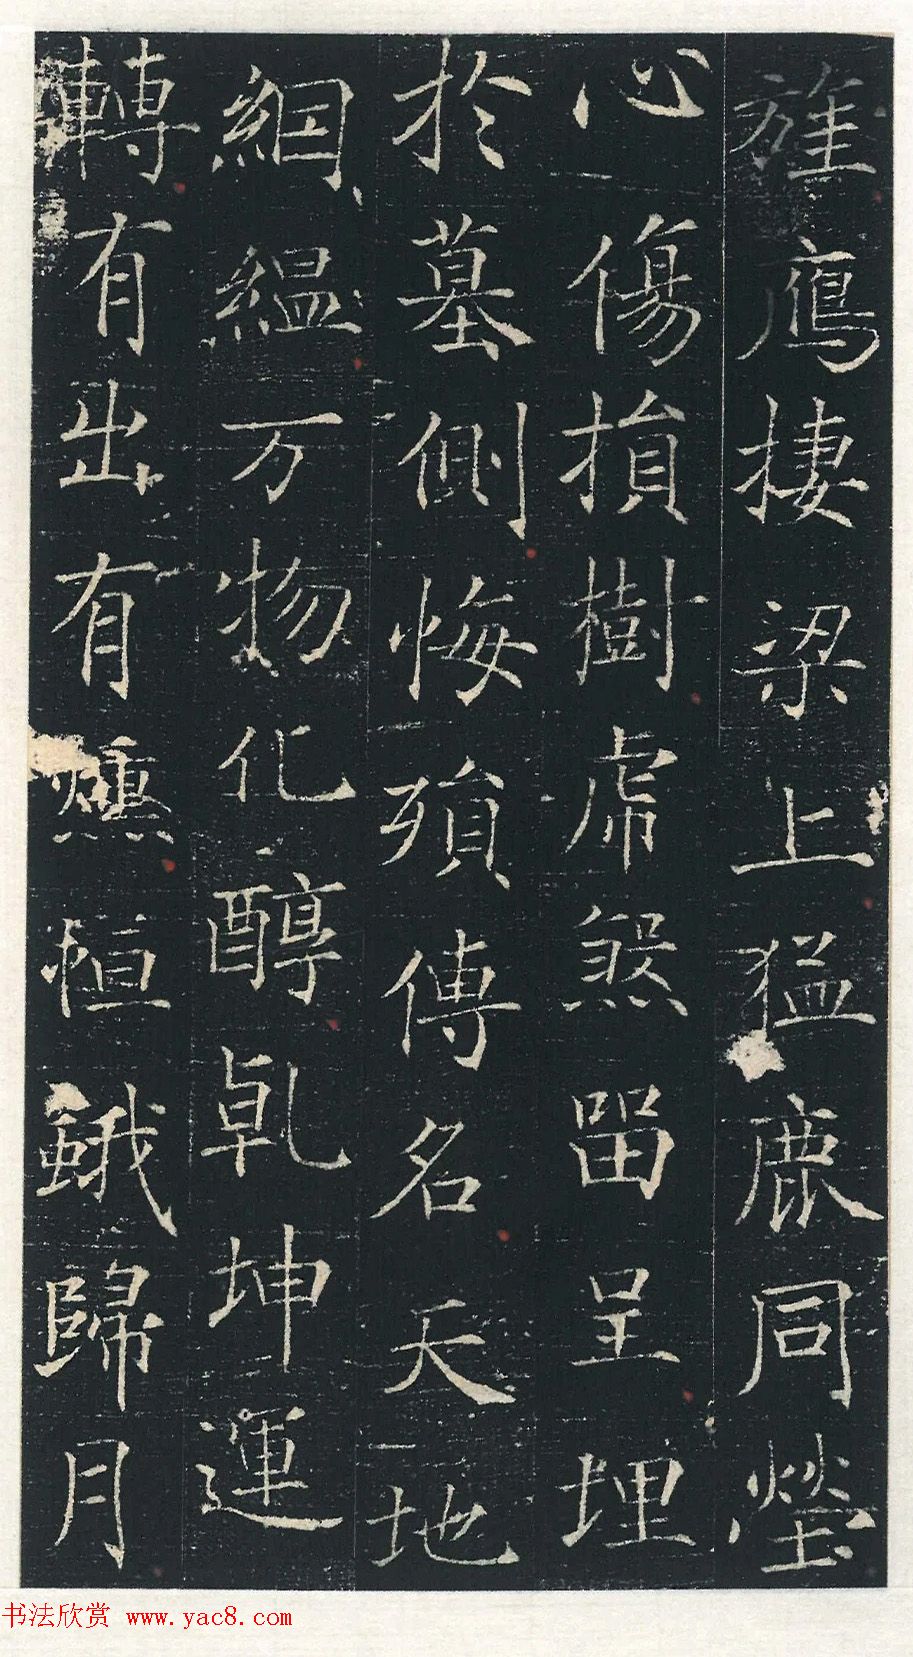 旌鷹棲梁上猛鹿同塋
心傷損樹虎煞留呈埋
於墓側悔殞傳名天地
絪縕万物化醇乹坤運
轉有出有燻植蛾歸月
书法欣赏 www.yac8.com